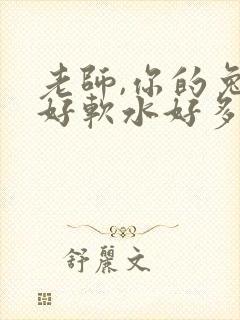 老師,你的兔
好軟水好多
舒麗文